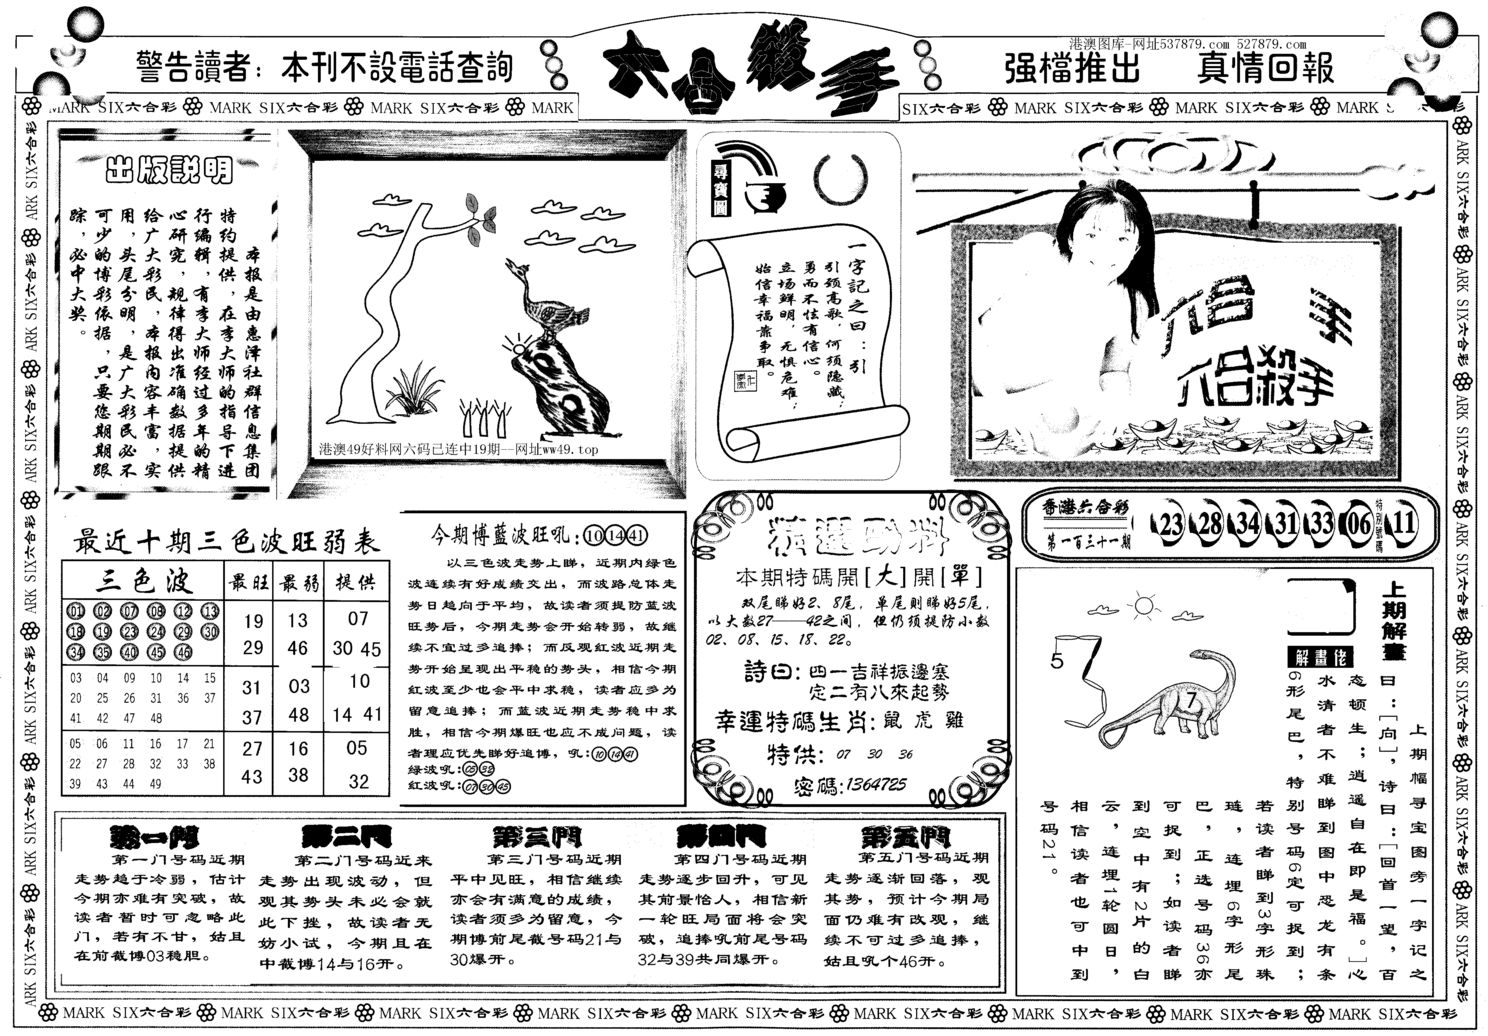 警告讀者：本刊不設電話查詢
六合殺手
港澳图库-网址537879.com 527879.com
强檔推出 真情回報
MARK SIX六合彩 MARK SIX六合彩 MARK SIX六合彩 MARK
SIX六合彩 MARK SIX六合彩 MARK SIX六合彩 MARK S
出版説明
本报是由惠泽社群信息集团
特约提供，在李大师的指导下进
行编辑，有李大师经过多年的精
心研究，规律得出准确数据提供
给广大彩民，本报内容丰富，实
用，头尾分明，是广大彩民必不
可少的博彩依据，只要您期期跟
踪，必中大奖。
港澳49好料网六码已连中19期—网址ww49.top
尋寶圖
一字记之曰：引
引颈高歌，何须隐藏；
勇而不怯有信心。
立场鲜明，无惧危难；
始信幸福靠争取。
六合 手
六合殺手
香港六合彩
第一百三十一期
23 28 34 31 33 06 特别號碼 11
最近十期三色波旺弱表
三色波 最旺 最弱 提供
01 02 07 08 12 13
18 19 23 24 29 30
34 35 40 45 46
19 13 07
29 46 30 45
03 04 09 10 14 15
20 25 26 31 36 37
41 42 47 48
31 03 10
37 48 14 41
05 06 11 16 17 21
22 27 28 32 33 38
39 43 44 49
27 16 05
43 38 32
今期博藍波旺吼：10 14 41
以三色波走势上睇，近期内绿色
波连续有好成绩交出，而波路总体走
势日趋向于平均，故读者须提防蓝波
旺势后，今期走势会开始转弱，故继
续不宜过多追捧；而反观红波近期走
势开始呈现出平稳的势头，相信今期
红波至少也会平中求稳，读者应多为
留意追捧；而蓝波近期走势稳中求
胜，相信今期爆旺也应不成问题，读
者理应优先睇好追博，吼：10 14 41
绿波吼：05 32
红波吼：07 30 45
精選勁料
本期特碼開[大]開[單]
双尾睇好2、8尾，单尾则睇好5尾，
以大数27——42之间，但仍须提防小数
02、08、15、18、22。
詩曰：四一吉祥振邊塞
定二有八來起勢
幸運特碼生肖：鼠 虎 雞
特供：07 30 36
密碼：1364725
5
7
上期解畫
解畫佬
上期幅寻宝图旁一字记之
曰：[向]，诗曰：[回首一望，百
态顿生；逍遥自在即是福。]心
水清者不难睇到图中恐龙有条
6形尾巴，特别号码6定可捉到；
若读者睇到3字形珠
琏，连埋6字形尾
巴，正选号码36亦
可捉到；如读者睇
到空中有2片的白
云，连埋1轮圆日，
相信读者也可中到
号码21。
第一門
第一门号码近期
走势趋于冷弱，估计
今期亦难有突破，故
读者暂时可忽略此
门，若有不甘，姑且
在前截博03稳胆。
第二門
第二门号码近来
走势出现波动，但
观其势头未必会就
此下挫，故读者无
妨小试，今期且在
中截博14与16开。
第三門
第三门号码近期
平中见旺，相信继续
亦会有满意的成绩，
读者须多为留意，今
期博前尾截号码21与
30爆开。
第四門
第四门号码近期
走势逐步回升，可见
其前景怡人，相信新
一轮旺局面将会突
破，追捧吼前尾号码
32与39共同爆开。
第五門
第五门号码近期
走势逐渐回落，观
其势，预计今期局
面仍难有改观，继
续不可过多追捧，
姑且吼个46开。
MARK SIX六合彩 MARK SIX六合彩 MARK SIX六合彩 MARK SIX六合彩 MARK SIX六合彩 MARK SIX六合彩 MARK SIX六合彩 MARK SIX六合彩 MARK SIX六合彩